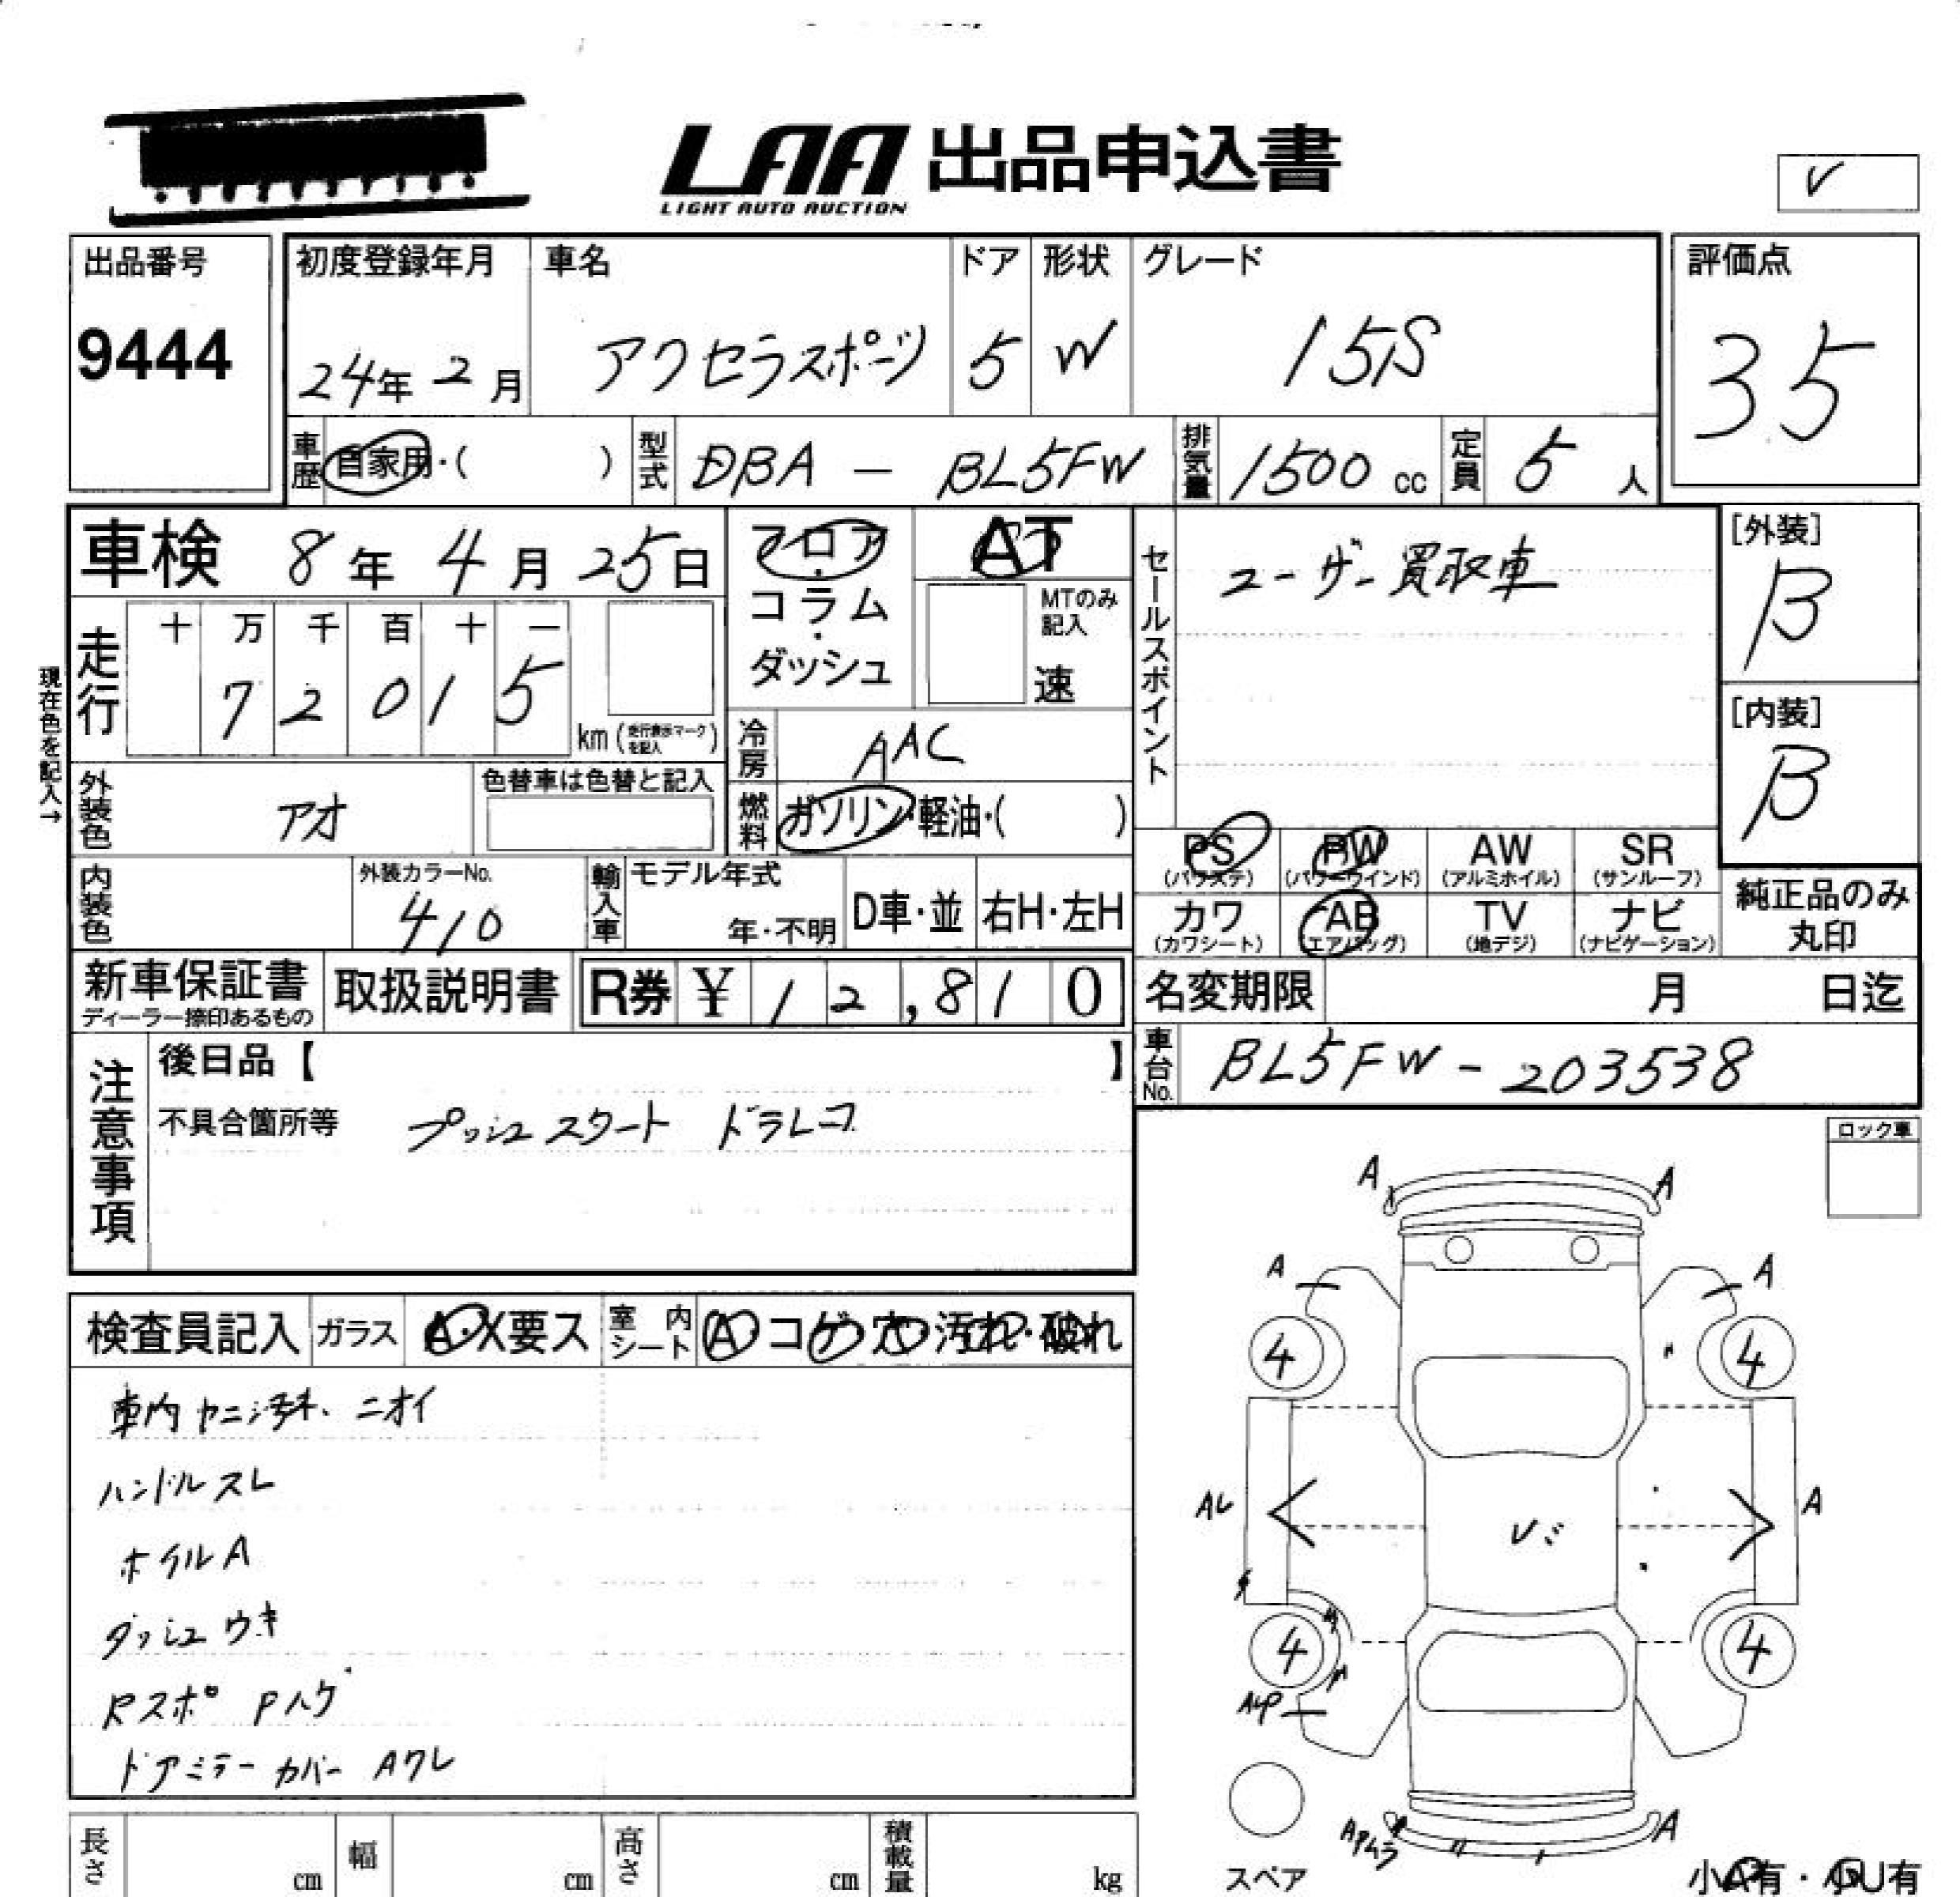 LAA 出品申込書
LIGHT AUTO AUCTION
V
出品番号
9444
初度登録年月
24年 2月
車名
アクセラスポーツ
ドア
5
形状
W
グレード
15S
評価点
35
車歴
自家用・( )
型式
DBA - BL5FW
排気量
1500 cc
定員
5 人
車検 8年 4月 25日
フロア・コラム・ダッシュ
AT
MTのみ記入
速
セールスポイント
ユーザー買取車
[外装]
B
[内装]
B
現在色を記入→
走行
十 万 千 百 十 一
7 2 0 1 5
km (走行表示マークを記入)
冷房
AAC
外装色
アオ
色替車は色替と記入
燃料
ガソリン・軽油・( )
PS (パワステ)
PW (パワーウインド)
AW (アルミホイル)
SR (サンルーフ)
カワ (カワシート)
AB (エアバッグ)
TV (地デジ)
ナビ (ナビゲーション)
純正品のみ丸印
内装色
外装カラーNo.
410
輸入車
モデル年式
年・不明
D車・並
右H・左H
新車保証書
ディーラー捺印あるもの
取扱説明書
R券 ¥ 12,810
名変期限 月 日迄
車台No.
BL5FW-203538
注意事項
後日品【 】
不具合箇所等 プッシュスタート ドラレコ
ロック車
検査員記入
ガラス A・X要ス
室内シート A・コゲ・穴・汚れ・破れ
車内ヤニ汚れ、ニオイ
ハンドルスレ
ホイルA
ダッシュウキ
Rスポ Pハゲ
ドアミラーカバー Aワレ
A A
A A
4 4
AU A
4 4
AUP
APムラ A
スペア
小A有・小U有
長さ cm
幅 cm
高さ cm
積載量 kg